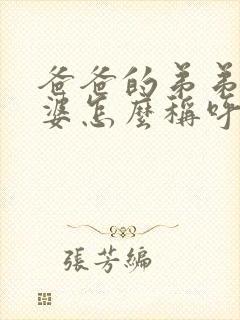 爸爸的弟弟
婆怎麼稱呼
張芳編